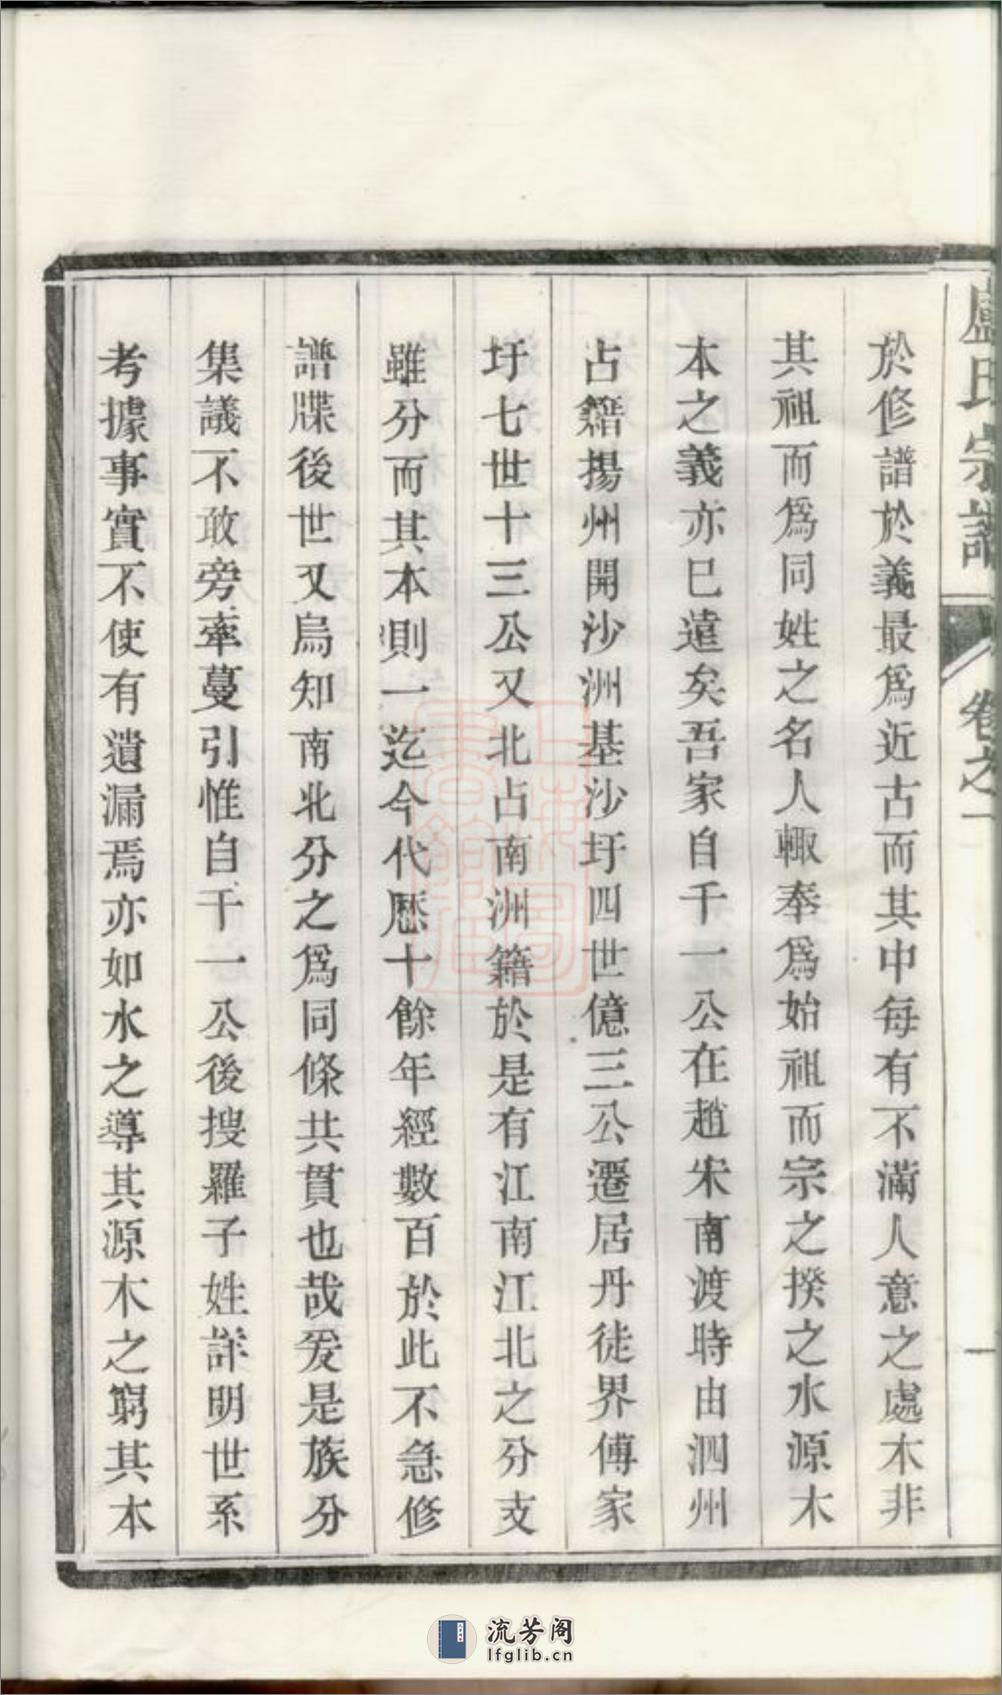 盧氏宗譜 卷之一 一
於修譜於義最爲近古而其中每有不滿人意之處木非
其祖而爲同姓之名人輙奉爲始祖而宗之揆之水源木
本之義亦已遠矣吾家自千一公在趙宋南渡時由泗州
占籍揚州開沙洲基沙圩四世億三公遷居丹徒界傅家
圩七世十三公又北占南洲籍於是有江南江北之分支
雖分而其本則一迄今代歷十餘年經數百於此不急修
譜牒後世又烏知南北分之爲同條共貫也哉爰是族分
集議不敢旁牽蔓引惟自千一公後搜羅子姓詳明世系
考據事實不使有遺漏焉亦如水之導其源木之窮其本
上海圖書館藏
流芳阁
lfglib.cn